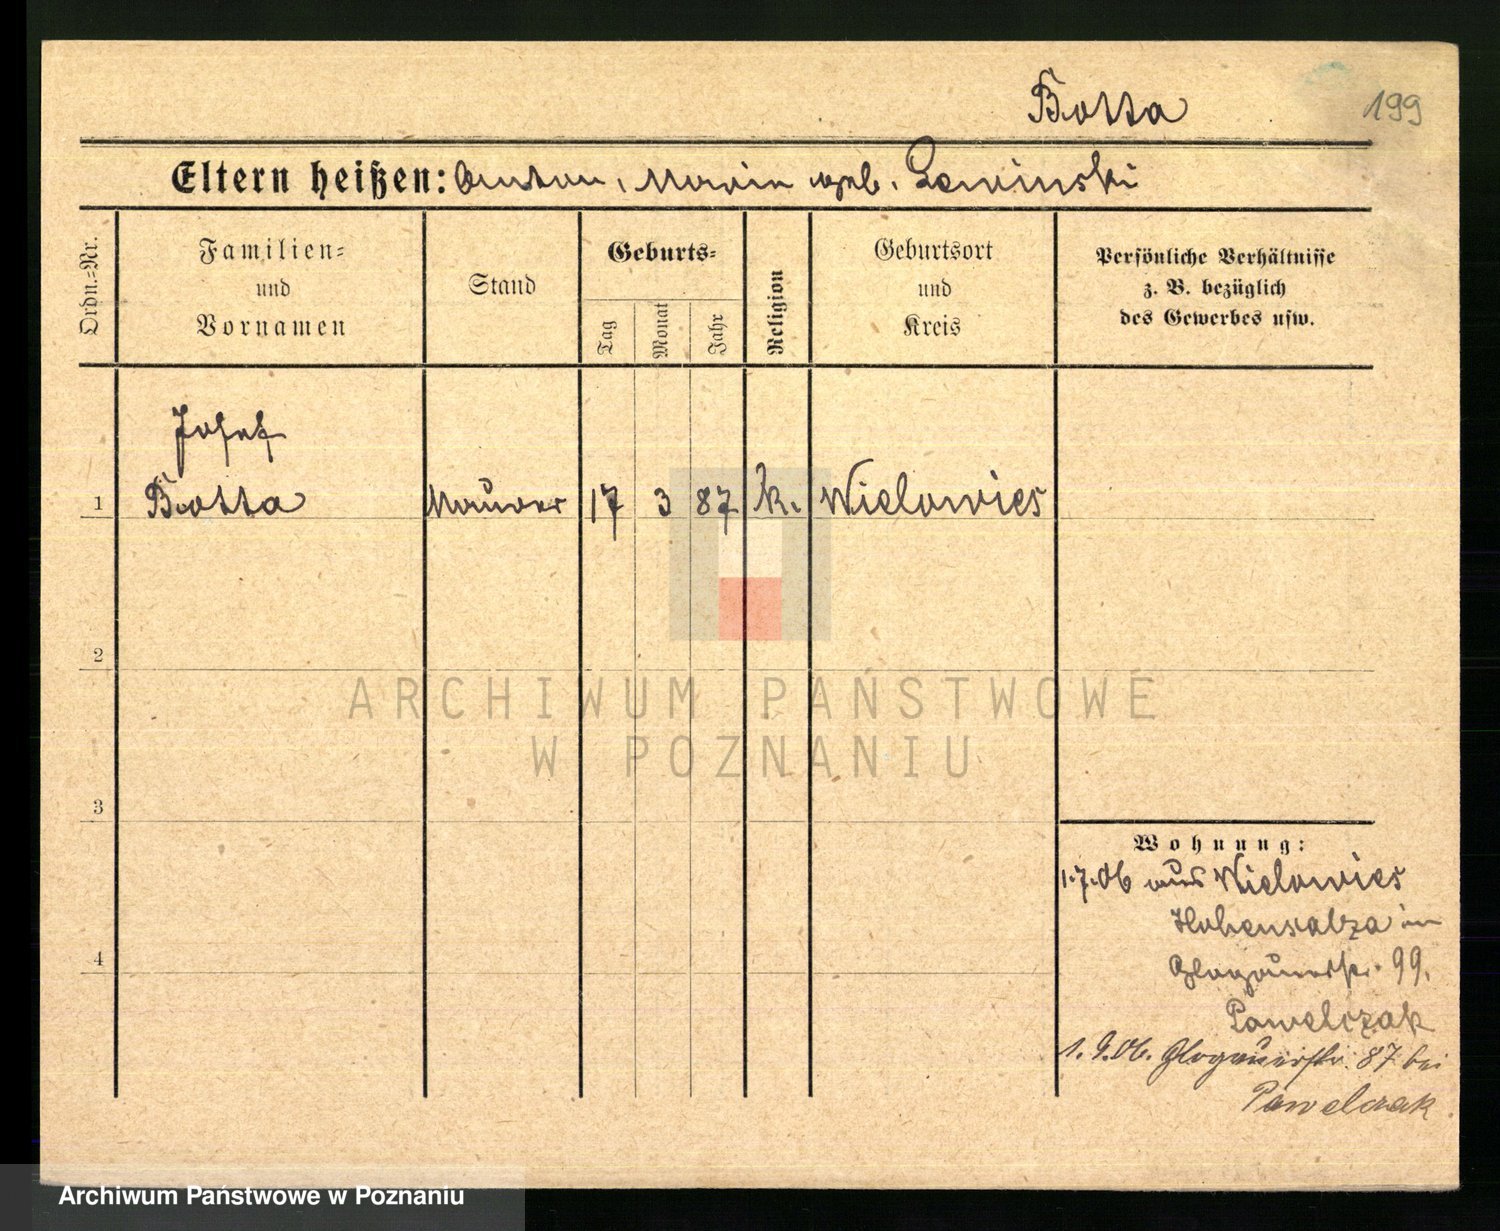 Botta
199
Eltern heißen: Anton, Maria geb. Lewinski
Ordn.=Nr.
Familien=
und
Vornamen
Stand
Geburts=
Tag
Monat
Jahr
Religion
Geburtsort
und
Kreis
Persönliche Verhältnisse
z. B. bezüglich
des Gewerbes usw.
Josef
1 Botta Maurer 17 3 87 k. Wielowies
2
ARCHIWUM PAŃSTWOWE
W POZNANIU
3
Wohnung:
1.7.06 aus Wielowies
Hohensalza in
Glogauerstr. 99.
Pawelczak
4
1.9.06. Glogauerstr. 87 bei
Pawelczak
Archiwum Państwowe w Poznaniu